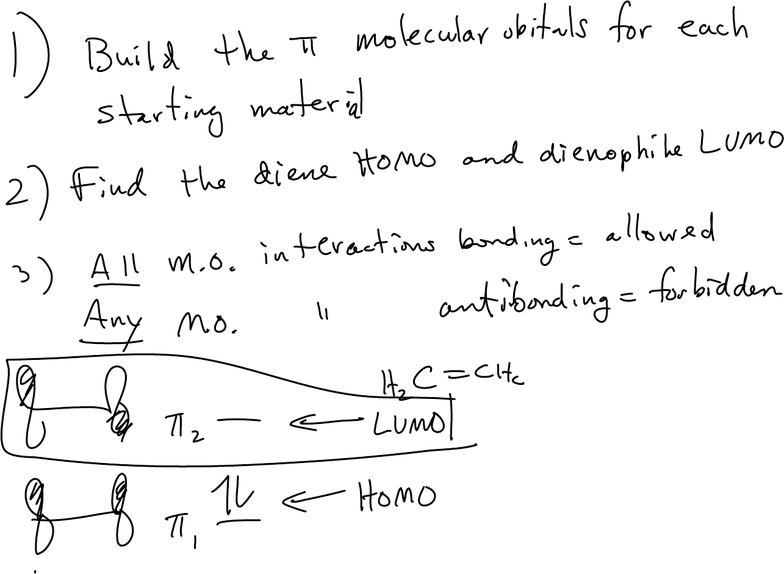 1) Build the π molecular obitals for each
starting material
2) Find the diene HOMO and dienophile LUMO
3) All m.o. interactions bonding = allowed
Any mo. " antibonding = forbidden
H₂C=CH₂
π₂ — ← LUMO
π₁ ⥮ ← HOMO